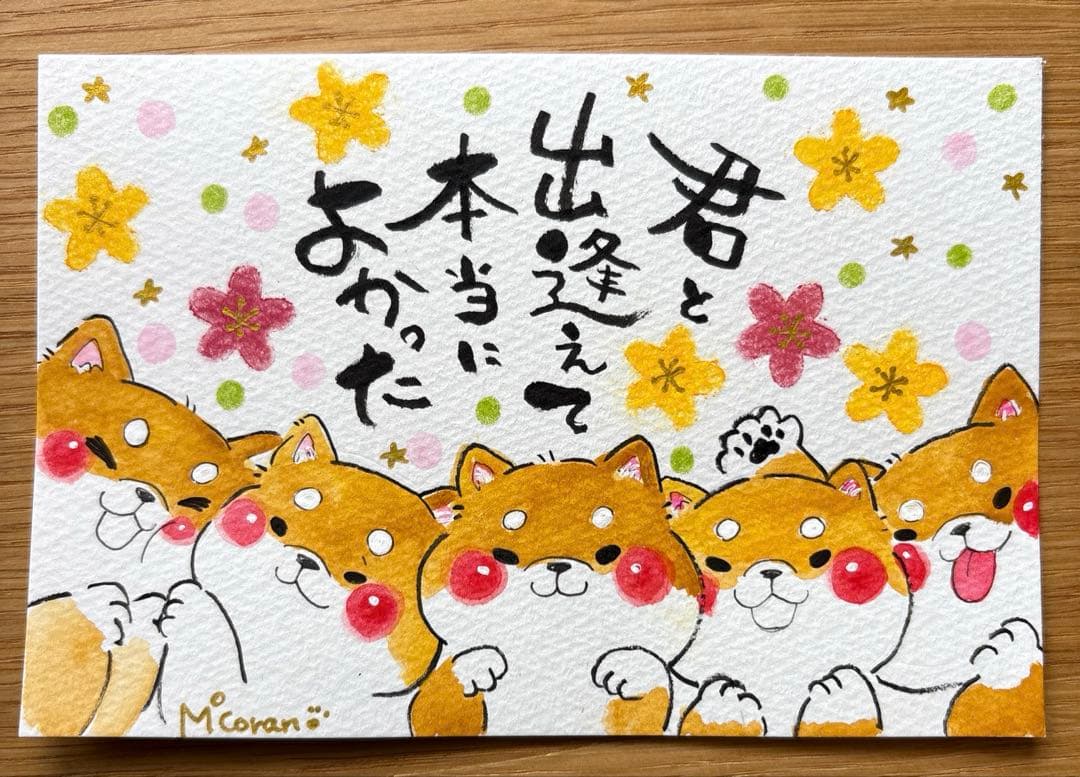 君と
出逢えて
本当に
よかった
Mcoran